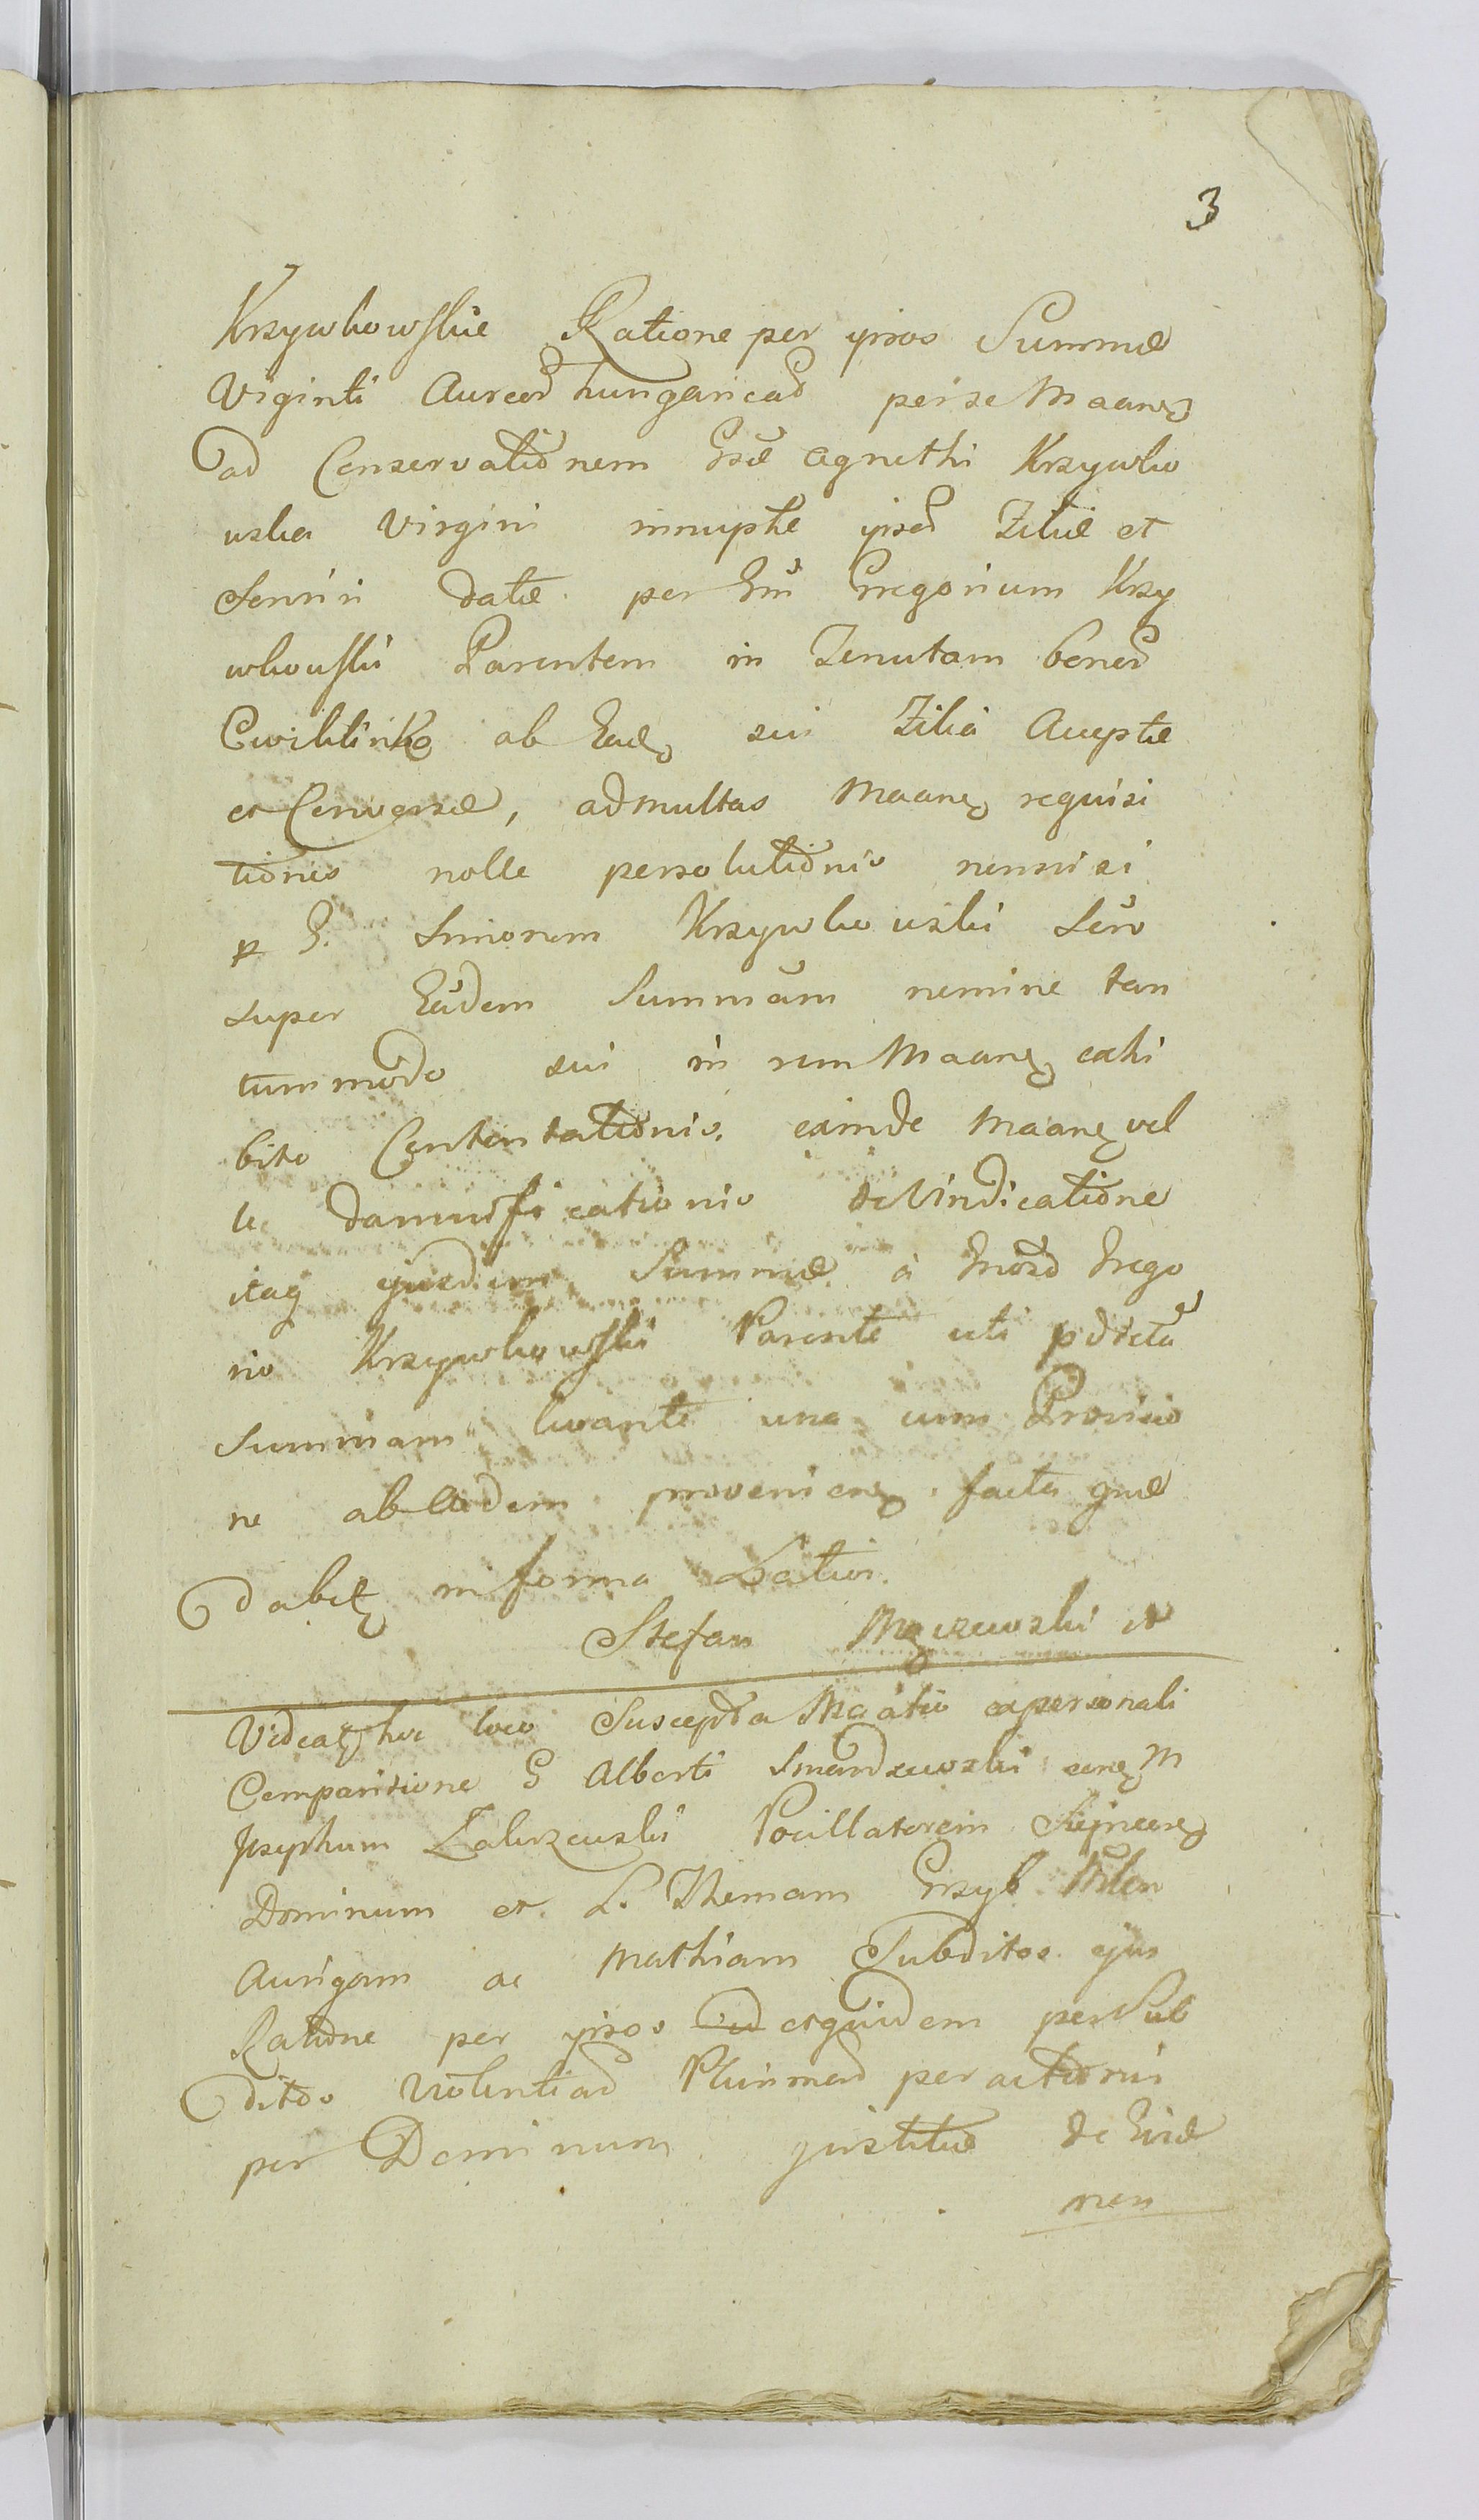 3
Krzywkowskie Ratione per ipsos Summæ
Viginti Aureor hungaricad per se Maane
ad Conservationem Gsæ Agnethi Krzywko
wska Virgini innuptæ ipsad Filiæ et
Sorori datæ per Gm Gregorium Krzy
wkowski Parentem in Tenutam bonor
Cwiklinko ab Eade sui Filia Acceptæ
et Conversæ, ad multas Maane requisi
tiones nolle persolutionis nonnisi
p G. Seniorem Krzywkowski Seu
super Eadem Summam nemine tan
tummodo sui in rem Maane exhi
bito Contentationis. exinde Maane vel
le damnificationis de Vindicatione
itaq ejusdem Summæ à Gnoso Grego
rio Krzywkowski Parente uti pdictā
Summam levante una cum Provisio
ne ab eadem proveniene facta quæ
dabit in forma Latiori.
Stefan
Videat hoc loco Suscepta Maatio ex personali
Comparitione G Alberti Smardzewski cone M
Josephum Zakrzewski Pocillatorem
Dominum et L. Thomam Grzyb
Aurigam ac Mathiam Subditos ejus
Ratione per ipsos et quidem per Sub
ditos Violentiad Plurimad peractionis
per Dominum justitiæ de Eisd
non